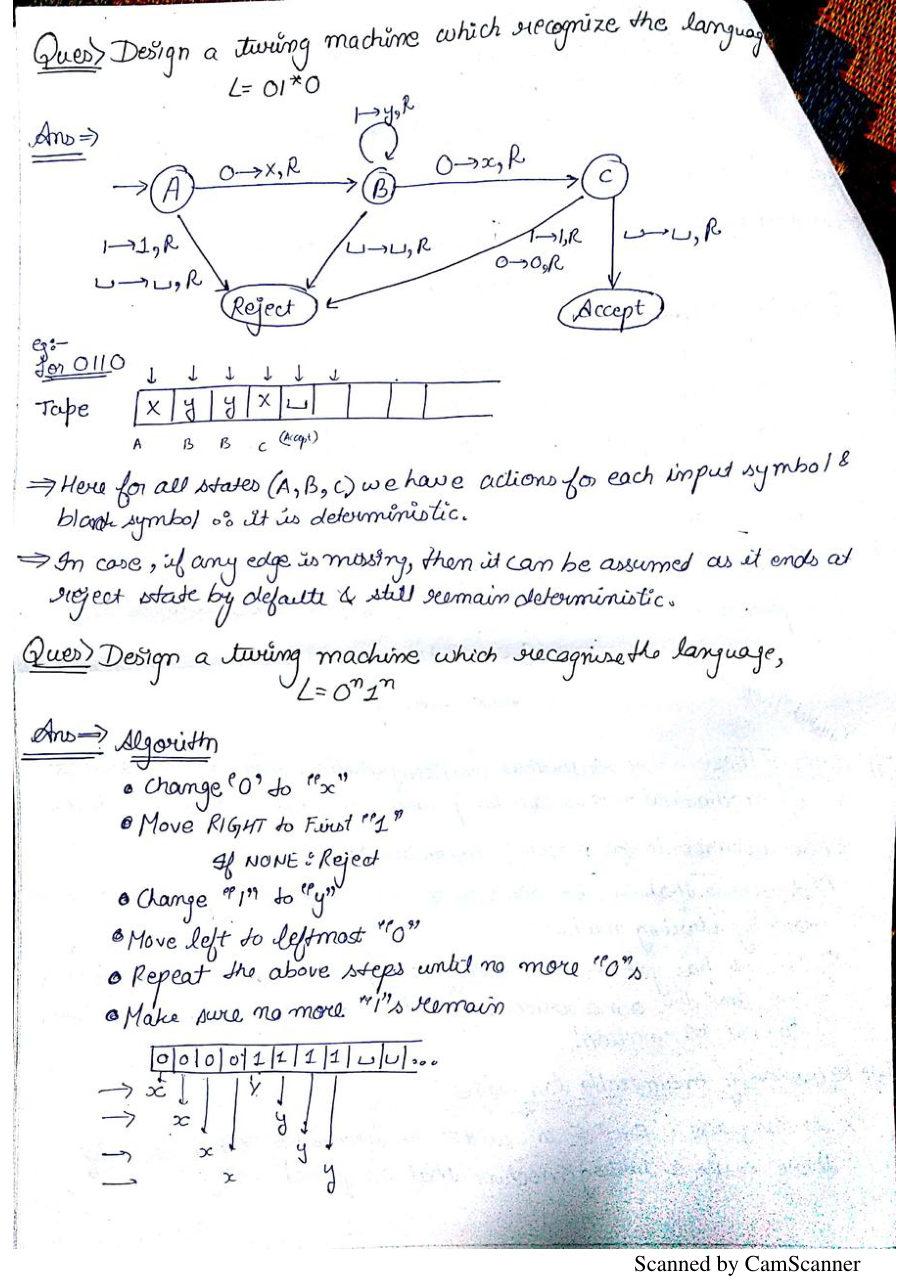 Ques> Design a turing machine which recognize the languag
L= 01*0
Ans ⇒
1→y,R
0→x,R
0→x,R
→ A
B
C
1→1,R
⊔→⊔,R
⊔→⊔,R
1→1,R
0→0,R
⊔→⊔,R
Reject
Accept
eg:-
for 0110
↓ ↓ ↓ ↓ ↓ ↓
Tape x y y x ⊔
A B B C (Accept)
⇒ Here for all states (A, B, C) we have actions for each input symbol &
blank symbol ∴ it is deterministic.
⇒ In case, if any edge is missing, then it can be assumed as it ends at
reject state by defaulte & still remain deterministic.
Ques> Design a turing machine which recognise the language,
L= 0ⁿ1ⁿ
Ans ⇒ Algorithm
• Change "0" to "x"
• Move RIGHT to First "1"
If NONE : Reject
• Change "1" to "y"
• Move left to leftmost "0"
• Repeat the above steps until no more "0"s
• Make sure no more "1"s remain
0 0 0 0 1 1 1 1 ⊔ ⊔ ...
→ x y
→ x y
→ x y
→ x y
Scanned by CamScanner